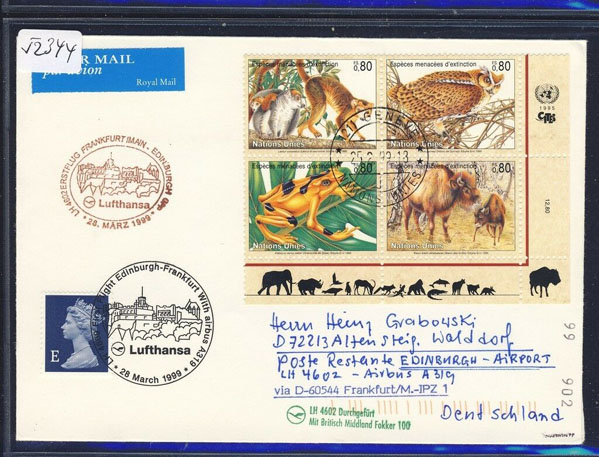 √2344
AIR MAIL
par avion
Royal Mail
Espèces menacées d'extinction
0,80
Nations Unies
Espèces menacées d'extinction
0,80
Nations Unies
Espèces menacées d'extinction
0,80
Nations Unies
Espèces menacées d'extinction
0,80
Nations Unies
1995
12,80
1211 GENEVE
NATIONS UNIES
LH 4602 ERSTFLUG FRANKFURT/MAIN - EDINBURGH
Lufthansa
* 28. MÄRZ 1999 *
E
Flight Edinburgh-Frankfurt With airbus A319
Lufthansa
* 28 March 1999 *
Herrn Heinz Grabowski
D72213 Altensteig. Walddorf
Poste Restante EDINBURGH-AIRPORT
LH 4602 - Airbus A319
via D-60544 Frankfurt/M.-IPZ 1
Deutschland
LH 4602 Durchgeführt
Mit Britisch Midlland Fokker 100
99
902